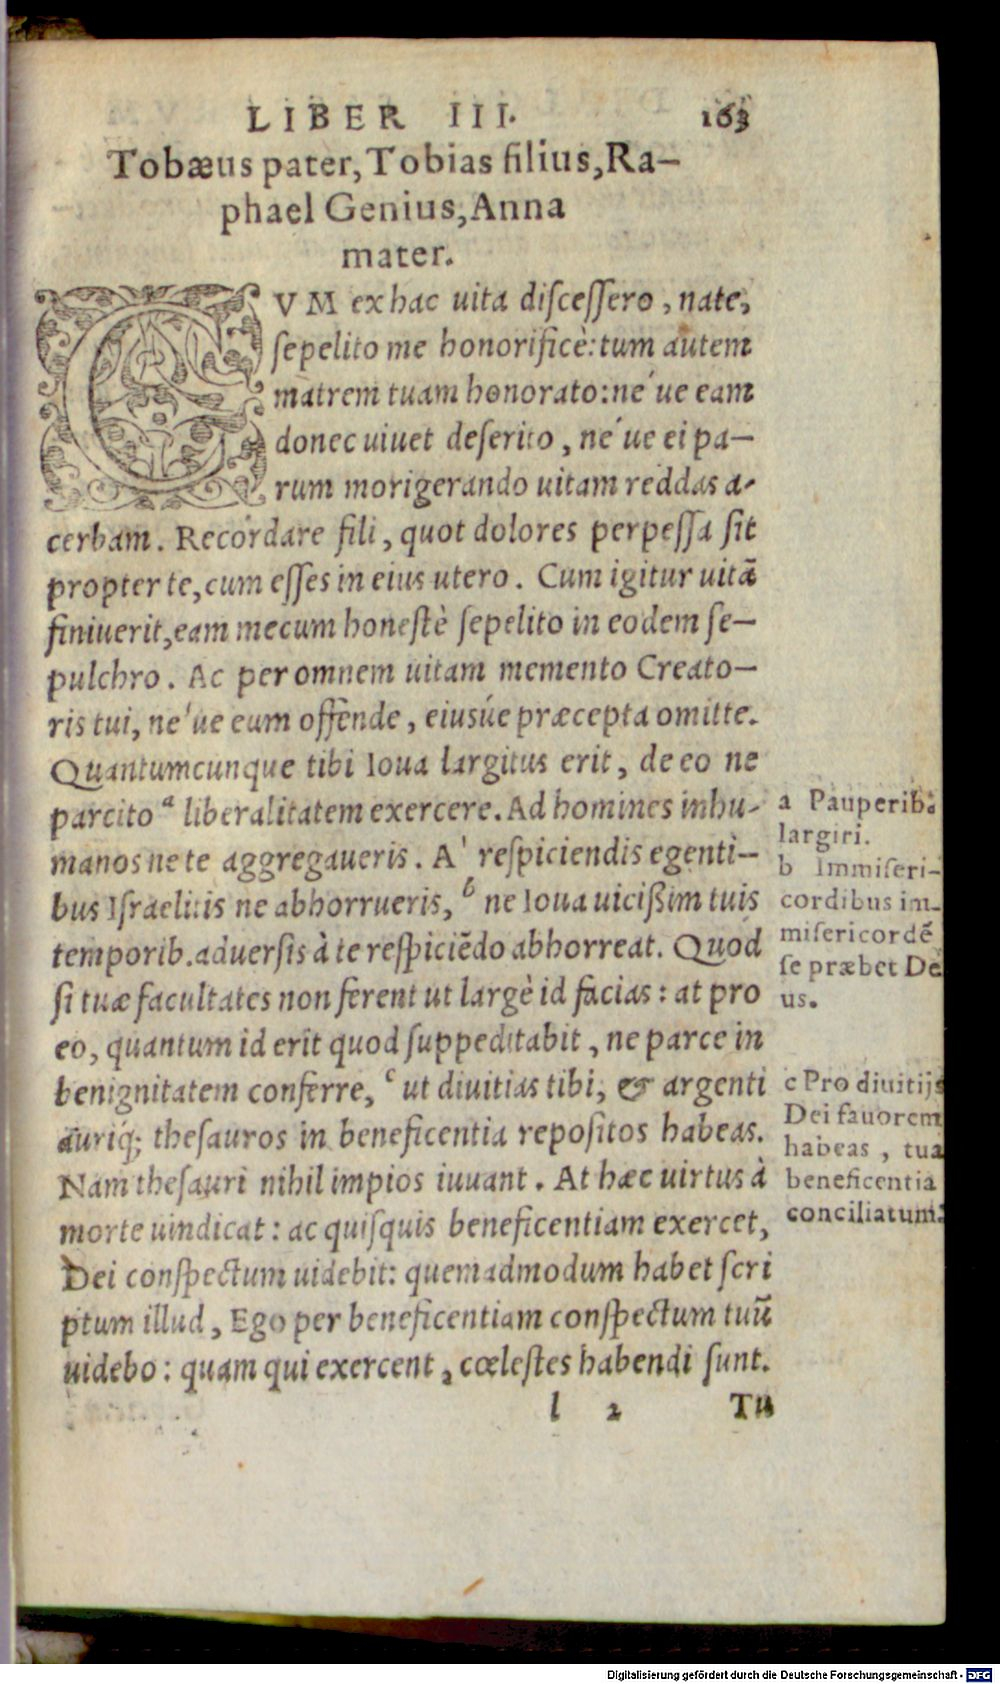 LIBER III. 163
Tobæus pater, Tobias filius, Ra-
phael Genius, Anna
mater.
CVM ex hac uita discessero, nate,
sepelito me honorificè: tum autem
matrem tuam honorato: ne´ue eam
donec uiuet deserito, ne´ue ei pa-
rum morigerando uitam reddas a-
cerbam. Recordare fili, quot dolores perpessa sit
propter te, cum esses in eius utero. Cum igitur uitā
finiuerit, eam mecum honestè sepelito in eodem se-
pulchro. Ac per omnem uitam memento Creato-
ris tui, ne´ue eum offende, eiusúe præcepta omitte.
Quantumcunque tibi Ioua largitus erit, de eo ne
parcito ᵃ liberalitatem exercere. Ad homines inhu-
manos ne te aggregaueris. A` respiciendis egenti-
bus Israelitis ne abhorrueris, ᵇ ne Ioua uicißim tuis
temporib. aduersis à te respiciēdo abhorreat. Quod
si tuæ facultates non ferent ut largè id facias: at pro
eo, quantum id erit quod suppeditabit, ne parce in
benignitatem conferre, ᶜ ut diuitias tibi, & argenti
auriq́; thesauros in beneficentia repositos habeas.
Nam thesauri nihil impios iuuant. At hæc uirtus à
morte uindicat: ac quisquis beneficentiam exercet,
Dei conspectum uidebit: quemadmodum habet scri
ptum illud, Ego per beneficentiam conspectum tuū
uidebo: quam qui exercent, cœlestes habendi sunt.
l 2 Tu
a Pauperib.
largiri.
b Immiseri-
cordibus im-
misericordē
se præbet De
us.
c Pro diuitijs
Dei fauorem
habeas, tua
beneficentia
conciliatum.
Digitalisierung gefördert durch die Deutsche Forschungsgemeinschaft - DFG